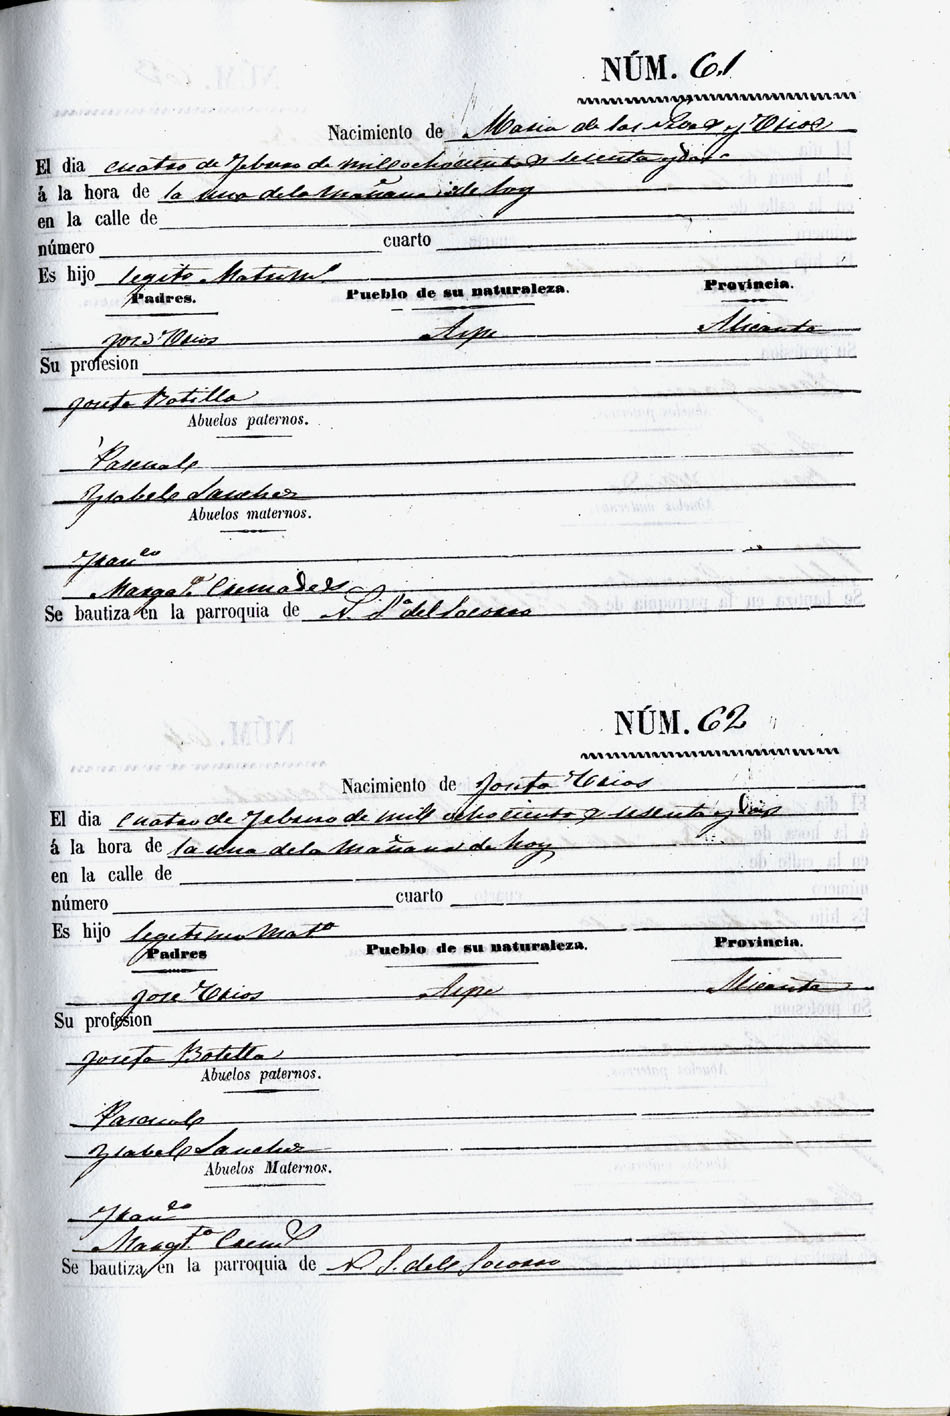 NÚM. 61
Nacimiento de Maria de las y Erios
El dia cuatro de Febrero de mil ochocientos sesenta y dos
á la hora de la una de la mañana de hoy
en la calle de
número cuarto
Es hijo legito Matrimo
Padres. Pueblo de su naturaleza. Provincia.
José Erios Aspe Alicante
Su profesion
Josefa Botella
Abuelos paternos.
Pascual
Ysabel Sanchez
Abuelos maternos.
Franco
Margata Cremades
Se bautiza en la parroquia de N. Sa del Socorro
NÚM. 62
Nacimiento de Josefa Erios
El dia cuatro de Febrero de mil ochocientos sesenta y dos
á la hora de la una de la mañana de hoy
en la calle de
número cuarto
Es hijo legitimo Mato
Padres Pueblo de su naturaleza. Provincia.
José Erios Aspe Alicante
Su profesion
Josefa Botella
Abuelos paternos.
Pascual
Ysabel Sanchez
Abuelos Maternos.
Franco
Margta Crem
Se bautiza en la parroquia de N S. del Socorro